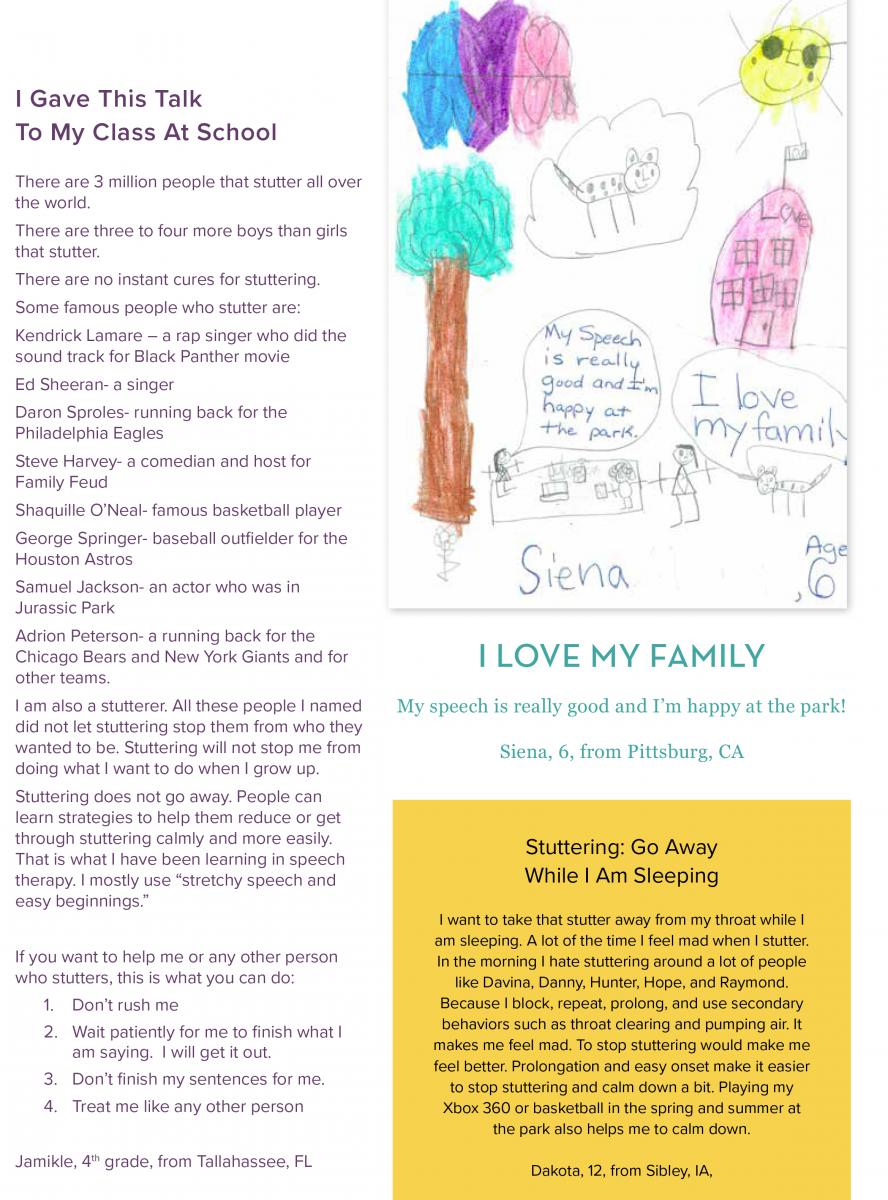 I Gave This Talk
To My Class At School
There are 3 million people that stutter all over
the world.
There are three to four more boys than girls
that stutter.
There are no instant cures for stuttering.
Some famous people who stutter are:
Kendrick Lamare – a rap singer who did the
sound track for Black Panther movie
Ed Sheeran- a singer
Daron Sproles- running back for the
Philadelphia Eagles
Steve Harvey- a comedian and host for
Family Feud
Shaquille O’Neal- famous basketball player
George Springer- baseball outfielder for the
Houston Astros
Samuel Jackson- an actor who was in
Jurassic Park
Adrion Peterson- a running back for the
Chicago Bears and New York Giants and for
other teams.
I am also a stutterer. All these people I named
did not let stuttering stop them from who they
wanted to be. Stuttering will not stop me from
doing what I want to do when I grow up.
Stuttering does not go away. People can
learn strategies to help them reduce or get
through stuttering calmly and more easily.
That is what I have been learning in speech
therapy. I mostly use “stretchy speech and
easy beginnings.”
If you want to help me or any other person
who stutters, this is what you can do:
1. Don’t rush me
2. Wait patiently for me to finish what I
am saying.  I will get it out.
3. Don’t finish my sentences for me.
4. Treat me like any other person
Jamikle, 4th grade, from Tallahassee, FL
Love
My Speech
is really
good and I'm
happy at
the park.
I love
my family
Siena
Age
,6
I LOVE MY FAMILY
My speech is really good and I’m happy at the park!
Siena, 6, from Pittsburg, CA
Stuttering: Go Away
While I Am Sleeping
I want to take that stutter away from my throat while I
am sleeping. A lot of the time I feel mad when I stutter.
In the morning I hate stuttering around a lot of people
like Davina, Danny, Hunter, Hope, and Raymond.
Because I block, repeat, prolong, and use secondary
behaviors such as throat clearing and pumping air. It
makes me feel mad. To stop stuttering would make me
feel better. Prolongation and easy onset make it easier
to stop stuttering and calm down a bit. Playing my
Xbox 360 or basketball in the spring and summer at
the park also helps me to calm down.
Dakota, 12, from Sibley, IA,